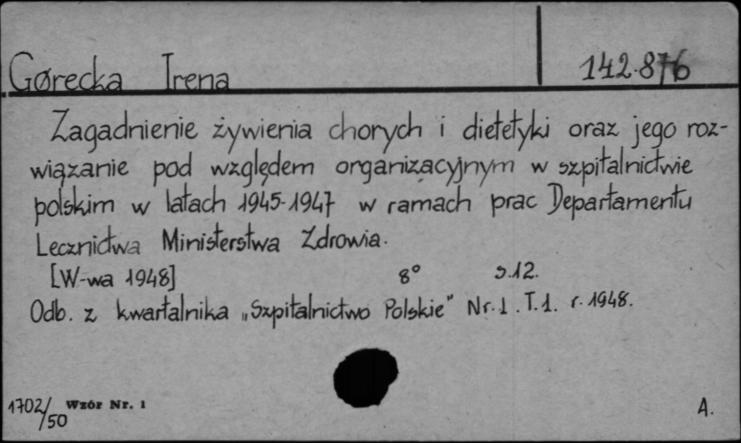 Górecka Irena 142.876
Zagadnienie żywienia chorych i dietetyki oraz jego roz-
wiązanie pod względem organizacyjnym w szpitalnictwie
polskim w latach 1945-1947 w ramach prac Departamentu
Lecznictwa Ministerstwa Zdrowia.
[W-wa 1948] 8° s.12.
Odb. z kwartalnika „Szpitalnictwo Polskie" Nr.1. T.1. r.1948.
1702/50 Wzór Nr. 1 A.